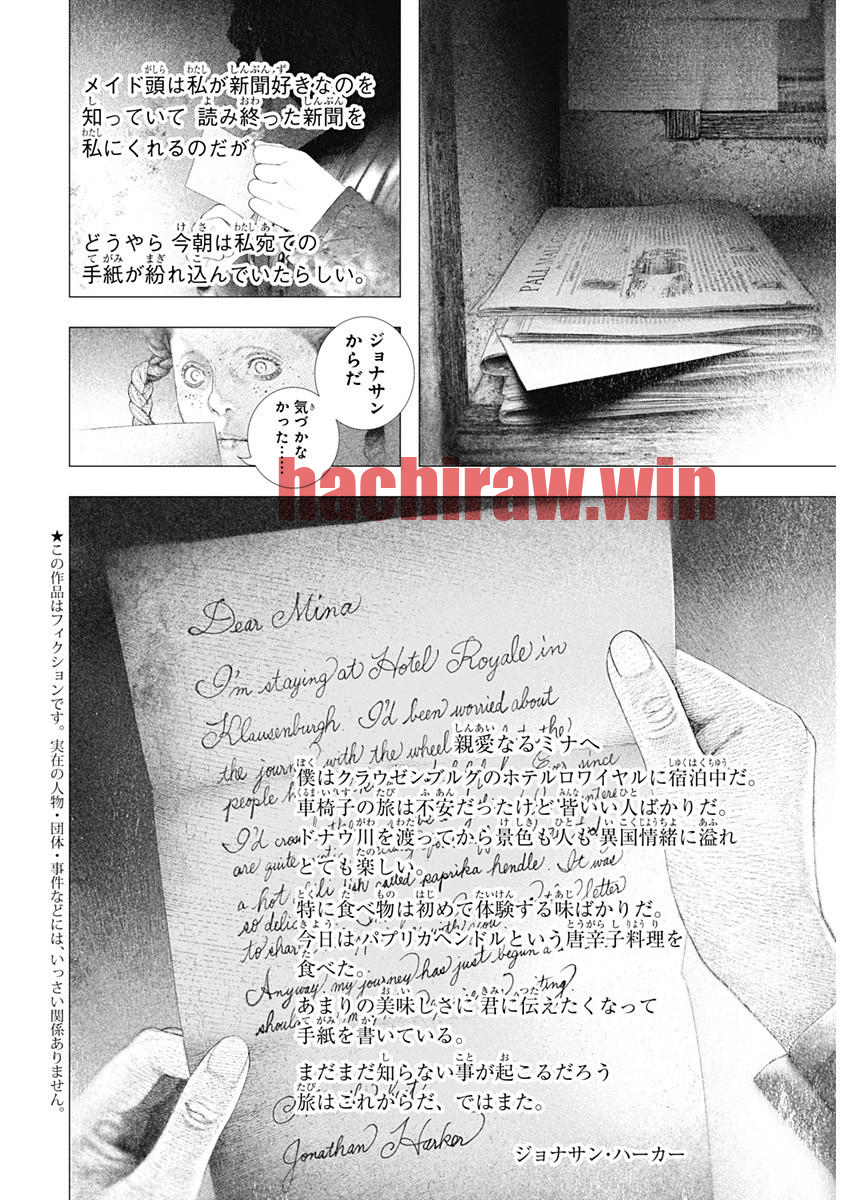 PALL MALL GAZ
メイド頭は私が新聞好きなのを
知っていて 読み終った新聞を
私にくれるのだが
どうやら 今朝は私宛ての
手紙が紛れ込んでいたらしい。
ジョナサン
からだ
気づかな
かった……
hachiraw.win
Dear Mina
I'm staying at Hotel Royale in
Klausenburgh. I'd been worried about
the journey with the wheel
people
since
I'd
are quite
a hot called paprika hendle. It was
so letter
to
Anyway, my journey has just begun
should
Jonathan Harker
親愛なるミナへ
僕はクラウゼンブルグのホテルロワイヤルに宿泊中だ。
車椅子の旅は不安だったけど 皆いい人ばかりだ。
ドナウ川を渡ってから景色も人も 異国情緒に溢れ
とても楽しい。
特に食べ物は初めて体験する味ばかりだ。
今日はパプリカヘンドルという唐辛子料理を
食べた。
あまりの美味しさに 君に伝えたくなって
手紙を書いている。
まだまだ知らない事が起こるだろう
旅はこれからだ、ではまた。
ジョナサン・ハーカー
★この作品はフィクションです。実在の人物・団体・事件などには、いっさい関係ありません。